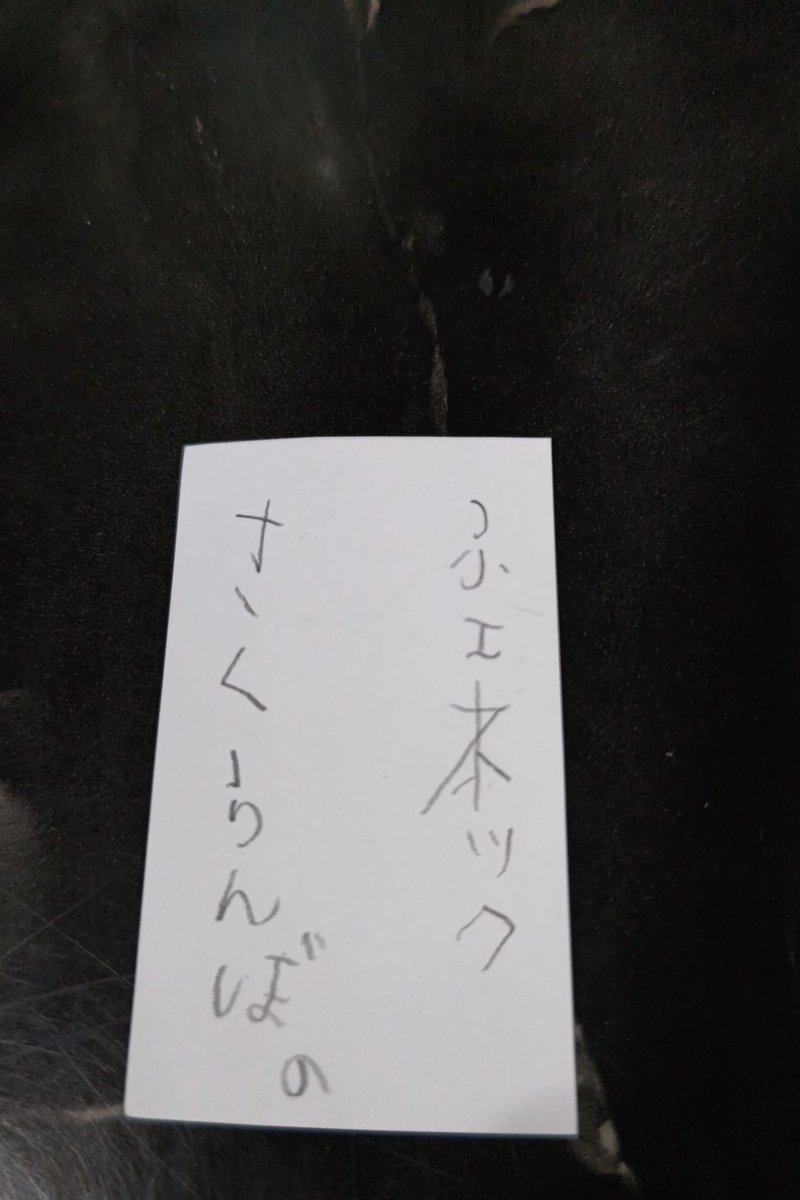 ふェネック
さくらんぼの